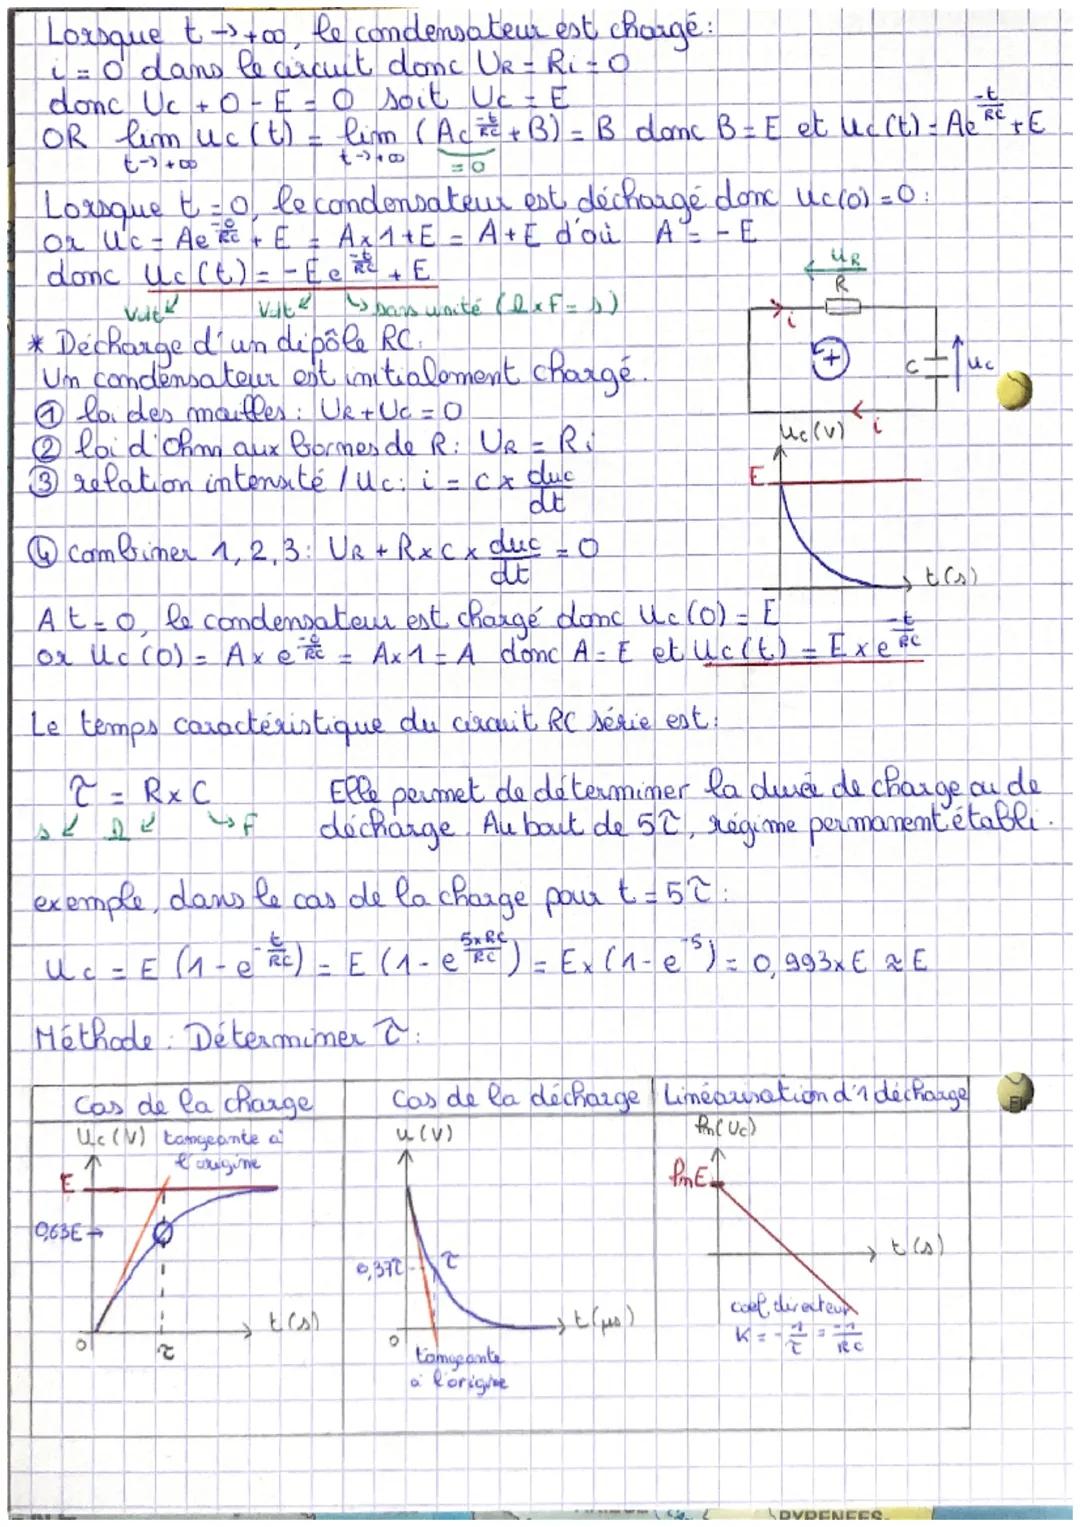 Lorsque t → +∞, le condensateur est chargé :
i = 0 dans le circuit donc UR = Ri = 0
donc Uc + 0 - E = 0 soit Uc = E
OR lim uc(t) = lim (Ae^(-t/RC) + B) = B donc B = E et Uc(t) = Ae^(-t/RC) + E
t→+∞ t→+∞ = 0
Lorsque t = 0, le condensateur est déchargé donc Uc(0) = 0 :
or Uc = Ae^(-0/RC) + E = A×1+E = A+E d'où A = -E
donc Uc(t) = -Ee^(-t/RC) + E
Volt Volt ↳ sans unité (Ω×F = s)
UR
R
i
+
C
uc
i
* Décharge d'un dipôle RC.
Un condensateur est initialement chargé.
① loi des mailles : UR + UC = 0
② loi d'Ohm aux bornes de R : UR = Ri
③ relation intensité / Uc : i = C × duc/dt
④ combiner 1, 2, 3 : UR + R×C× duc/dt = 0
Uc(V)
E
t(s)
A t = 0, le condensateur est chargé donc Uc(0) = E
or Uc(0) = A× e^(-0/RC) = A×1 = A donc A = E et Uc(t) = E×e^(-t/RC)
Le temps caractéristique du circuit RC série est :
τ = R×C Elle permet de déterminer la durée de charge ou de
s Ω ↳F décharge. Au bout de 5τ, régime permanent établi.
exemple, dans le cas de la charge pour t = 5τ :
Uc = E (1 - e^(-t/RC)) = E (1 - e^(5×RC/RC)) = E×(1 - e^-5) = 0,993×E ≈ E
Méthode : Déterminer τ :
Cas de la charge
Uc(V) tangeante à
l'origine
E
0,63E →
t(s)
0
τ
Cas de la décharge
u(V)
0,37τ
τ
t(μs)
0
tangeante
à l'origine
Linéarisation d'1 décharge
ln(Uc)
lnE
t(s)
coef, directeur
K = -1/τ = -1/RC
PYRENEES